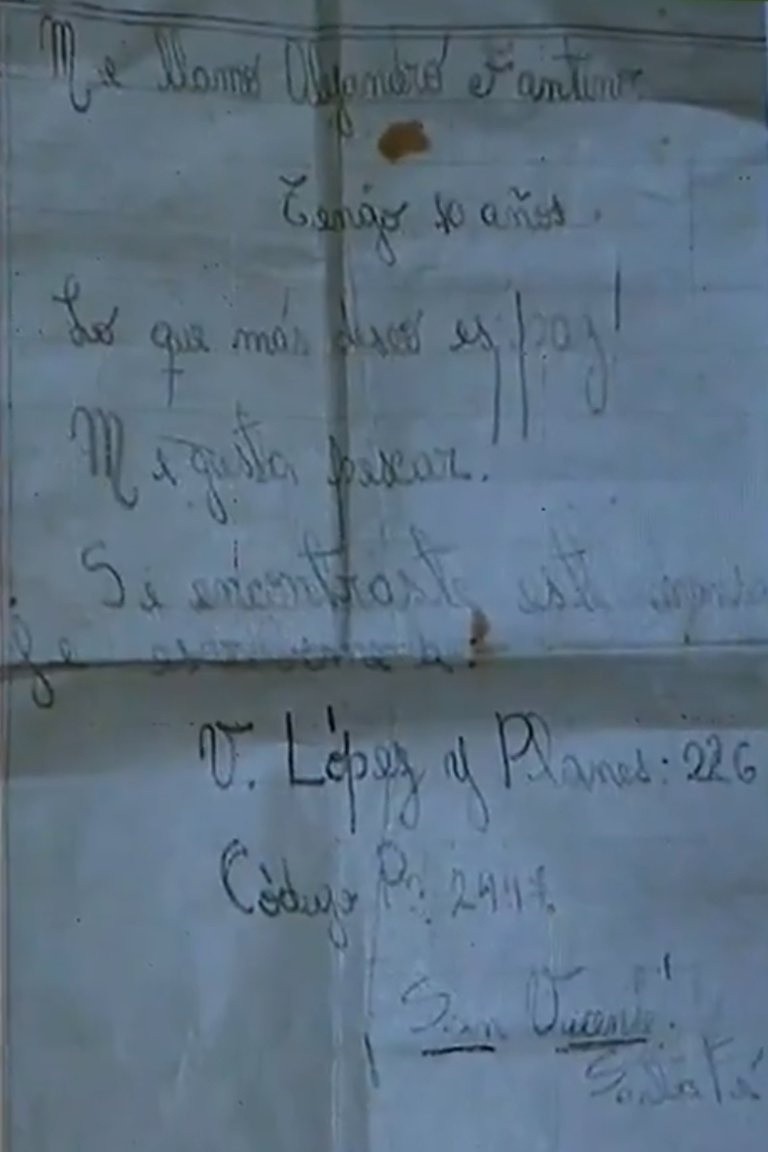 Me llamo Alejandro Fantino
Tengo 10 años.
Lo que más deseo es ¡paz!
Me gusta pescar.
Si encontraste este
V. López y Planes: 226
Código P: 2447
San Vicente
Santa Fé